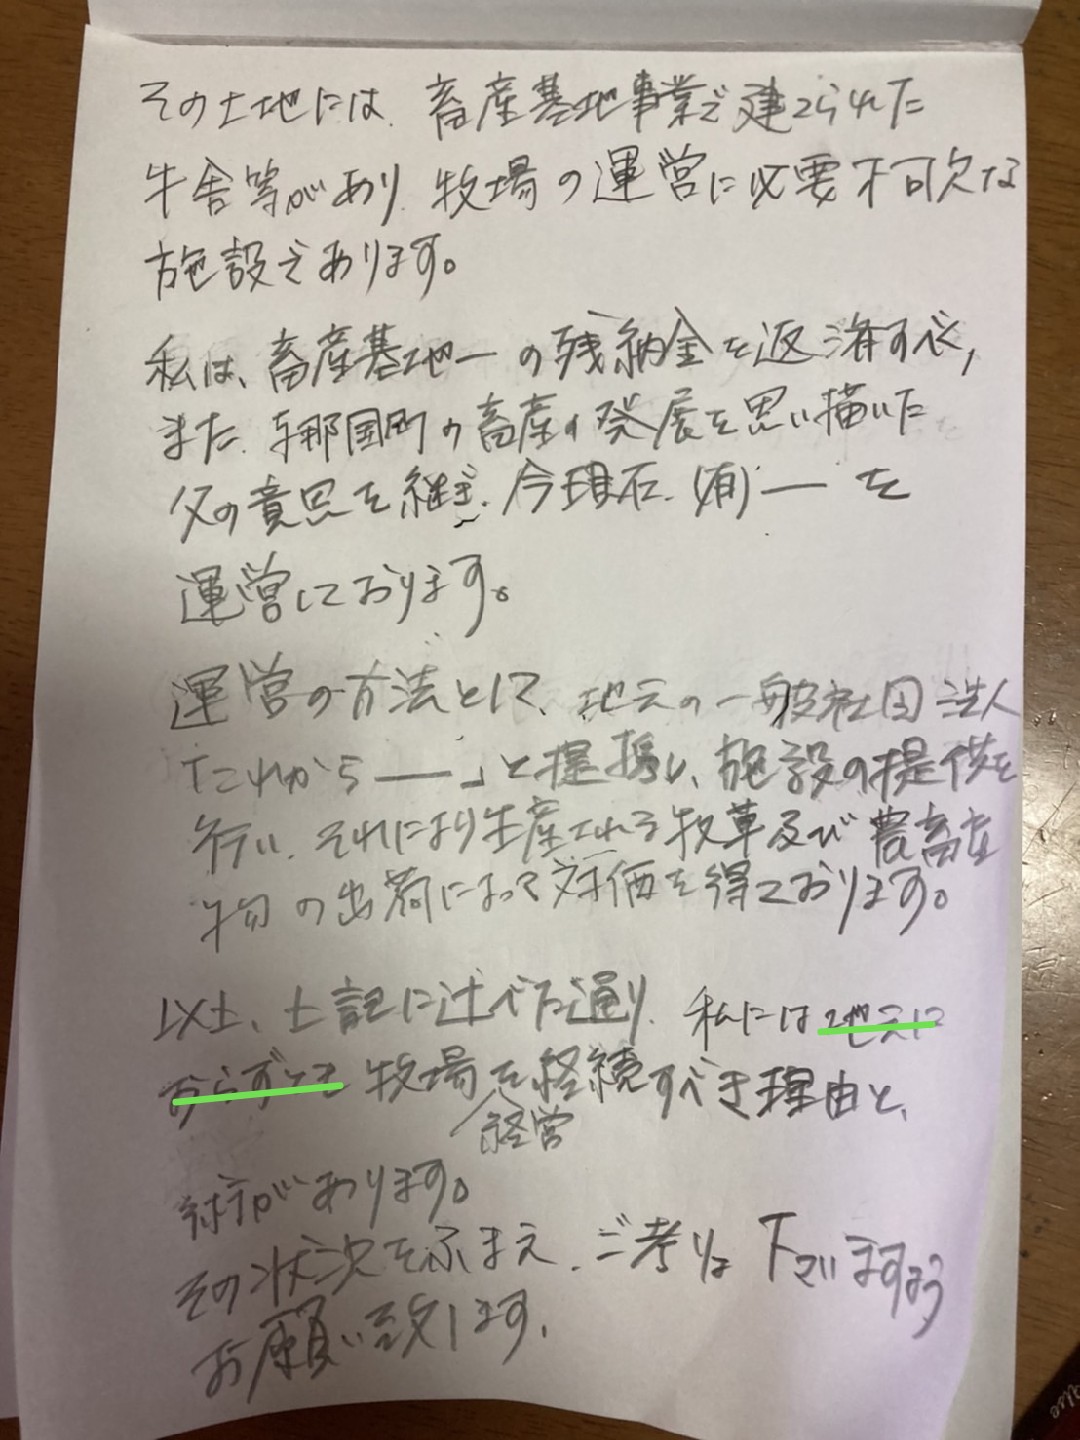 その土地には、畜産基地事業で建てられた
牛舎等があり、牧場の運営に必要不可欠な
施設であります。
私は、畜産基地一の残納金を返済すべく、
また、与那国町の畜産の発展を思い描いた
父の意思を継ぎ、今現在、(有)―を
運営しております。
運営の方法として、地元の一般社団法人
「これから―」と提携し、施設の提供を
行い、それにより生産される牧草及び農畜産
物の出荷によって対価を得ております。
以上、上記に述べた通り、私には地元に
おらずとも牧場を経続すべき理由と、
経営
術があります。
その状況をふまえ、ご考慮下さいますよう
お願い致します。